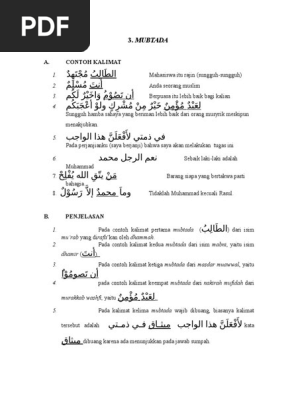 PDF
3. MUBTADA
A. CONTOH KALIMAT
1 الطَّالِبُ مُجْتَهِدٌ Mahasiswa itu rajin (sungguh-sungguh)
2 أَنتَ مُسْلِمٌ Anda seorang muslim
3 أن تَصُوْمُ وَاخَيْرٌ لَكم Berpuasa itu lebih baik bagi kalian
4 لِعَبْدٌ مُؤْمِنٌ خَيْرٌ مِنْ مُشْرِكٍ ولَوْ أَعْجَبَكُم
Sungguh hamba sahaya yang beriman lebih baik dari orang musyrik meskipun
menakjubkan
5 في ذمتي لأَفْعَلَنَّ هذا الواجب
Pada perjanjianku (saya berjanji) bahwa saya akan melakukan tugas ini
6 نعم الرجل محمد Sebaik laki-laki adalah
Muhammad
7 مَنْ يتَّقِ الله يُفْلِحْ Barang siapa yang bertakwa pasti
bahagia
8 وما محمدٌ إلاَّ رَسُوْلٌ Tidaklah Muhammad kecuali Rasul
B. PENJELASAN
1 Pada contoh kalimat pertama mubtada (الطَّالِبُ) dari isim
mu'rab yang dirafa'kan oleh dhammah
2 Pada contoh kalimat kedua mubtada dari isim mabni, yaitu isim
dhamir (أَنتَ)
3 Pada contoh kalimat ketiga mubtada dari masdar muawwal, yaitu
أن تَصومُوْا
4 pada contoh kalimat keempat mubtada dari nakirah mufidah dari
murakkab washfi, yaitu لِعَبْدٌ مُؤْمِنٌ
5 Pada kalimat kelima mubtada wajib dibuang, biasanya kalimat
tersebut adalah ميثاق في ذمتي لأَفْعَلَنَّ هذا الواجب kata
ميثاق dibuang karena ada menunjukkan pada jawab sumpah